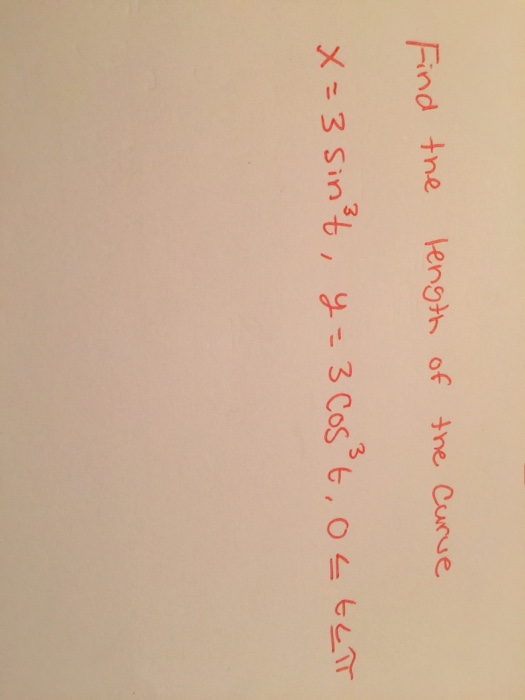 Find the length of the curve
x = 3 sin³t, y = 3 cos³t, 0 ≤ t ≤ π